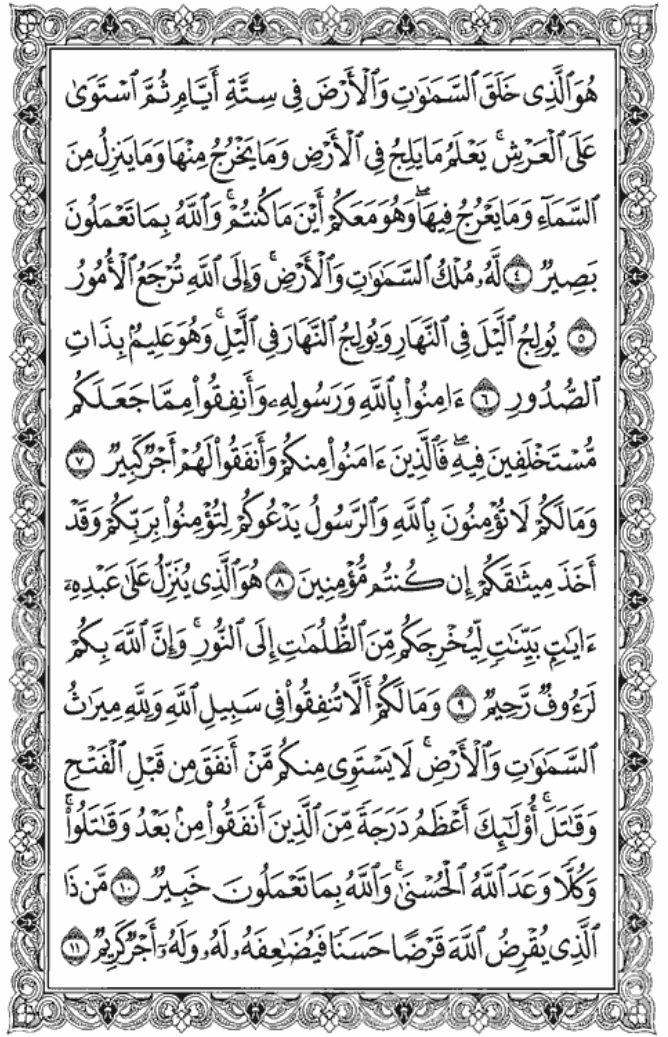 هُوَ ٱلَّذِى خَلَقَ ٱلسَّمَٰوَٰتِ وَٱلْأَرْضَ فِى سِتَّةِ أَيَّامٍ ثُمَّ ٱسْتَوَىٰ
عَلَى ٱلْعَرْشِ ۚ يَعْلَمُ مَا يَلِجُ فِى ٱلْأَرْضِ وَمَا يَخْرُجُ مِنْهَا وَمَا يَنزِلُ مِنَ
ٱلسَّمَآءِ وَمَا يَعْرُجُ فِيهَا ۖ وَهُوَ مَعَكُمْ أَيْنَ مَا كُنتُمْ ۚ وَٱللَّهُ بِمَا تَعْمَلُونَ
بَصِيرٌ ٤ لَّهُۥ مُلْكُ ٱلسَّمَٰوَٰتِ وَٱلْأَرْضِ ۚ وَإِلَى ٱللَّهِ تُرْجَعُ ٱلْأُمُورُ
٥ يُولِجُ ٱلَّيْلَ فِى ٱلنَّهَارِ وَيُولِجُ ٱلنَّهَارَ فِى ٱلَّيْلِ ۚ وَهُوَ عَلِيمٌۢ بِذَاتِ
ٱلصُّدُورِ ٦ ءَامِنُوا۟ بِٱللَّهِ وَرَسُولِهِۦ وَأَنفِقُوا۟ مِمَّا جَعَلَكُم
مُّسْتَخْلَفِينَ فِيهِ ۖ فَٱلَّذِينَ ءَامَنُوا۟ مِنكُمْ وَأَنفَقُوا۟ لَهُمْ أَجْرٌ كَبِيرٌ ٧
وَمَا لَكُمْ لَا تُؤْمِنُونَ بِٱللَّهِ وَٱلرَّسُولُ يَدْعُوكُمْ لِتُؤْمِنُوا۟ بِرَبِّكُمْ وَقَدْ
أَخَذَ مِيثَٰقَكُمْ إِن كُنتُم مُّؤْمِنِينَ ٨ هُوَ ٱلَّذِى يُنَزِّلُ عَلَىٰ عَبْدِهِۦٓ
ءَايَٰتٍۭ بَيِّنَٰتٍ لِّيُخْرِجَكُم مِّنَ ٱلظُّلُمَٰتِ إِلَى ٱلنُّورِ ۚ وَإِنَّ ٱللَّهَ بِكُمْ
لَرَءُوفٌ رَّحِيمٌ ٩ وَمَا لَكُمْ أَلَّا تُنفِقُوا۟ فِى سَبِيلِ ٱللَّهِ وَلِلَّهِ مِيرَٰثُ
ٱلسَّمَٰوَٰتِ وَٱلْأَرْضِ ۚ لَا يَسْتَوِى مِنكُم مَّنْ أَنفَقَ مِن قَبْلِ ٱلْفَتْحِ
وَقَٰتَلَ ۚ أُو۟لَٰٓئِكَ أَعْظَمُ دَرَجَةً مِّنَ ٱلَّذِينَ أَنفَقُوا۟ مِنۢ بَعْدُ وَقَٰتَلُوا۟ ۚ
وَكُلًّا وَعَدَ ٱللَّهُ ٱلْحُسْنَىٰ ۚ وَٱللَّهُ بِمَا تَعْمَلُونَ خَبِيرٌ ١٠ مَّن ذَا
ٱلَّذِى يُقْرِضُ ٱللَّهَ قَرْضًا حَسَنًا فَيُضَٰعِفَهُۥ لَهُۥ وَلَهُۥٓ أَجْرٌ كَرِيمٌ ١١